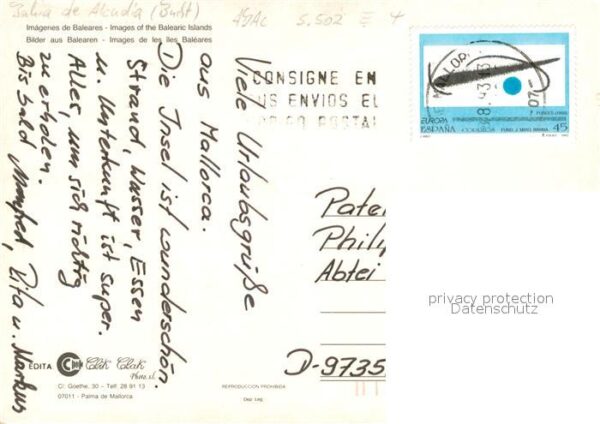 Bahia de Alcudia (Bucht)
Imágenes de Baleares - Images of the Balearic Islands
Bilder aus Balearen - Images de les îles Baléares
5.502
Viele Urlaubsgrüße
aus Mallorca.
Die Insel ist wunderschön.
Strand, Wasser, Essen
u. Unterkunft ist super.
Alles, um sich richtig
zu erholen.
Bis bald Manfred, Rita u. Markus
CONSIGNE EN
US ENVIOS EL
POSTAL
EUROPA
ESPAÑA CORREOS
45
Pate
Phili
Abtei
D-9735
privacy protection
Datenschutz
EDITA Clik Clak
C/. Goethe, 30 - Telf. 28 91 13
07011 - Palma de Mallorca
REPRODUCCION PROHIBIDA